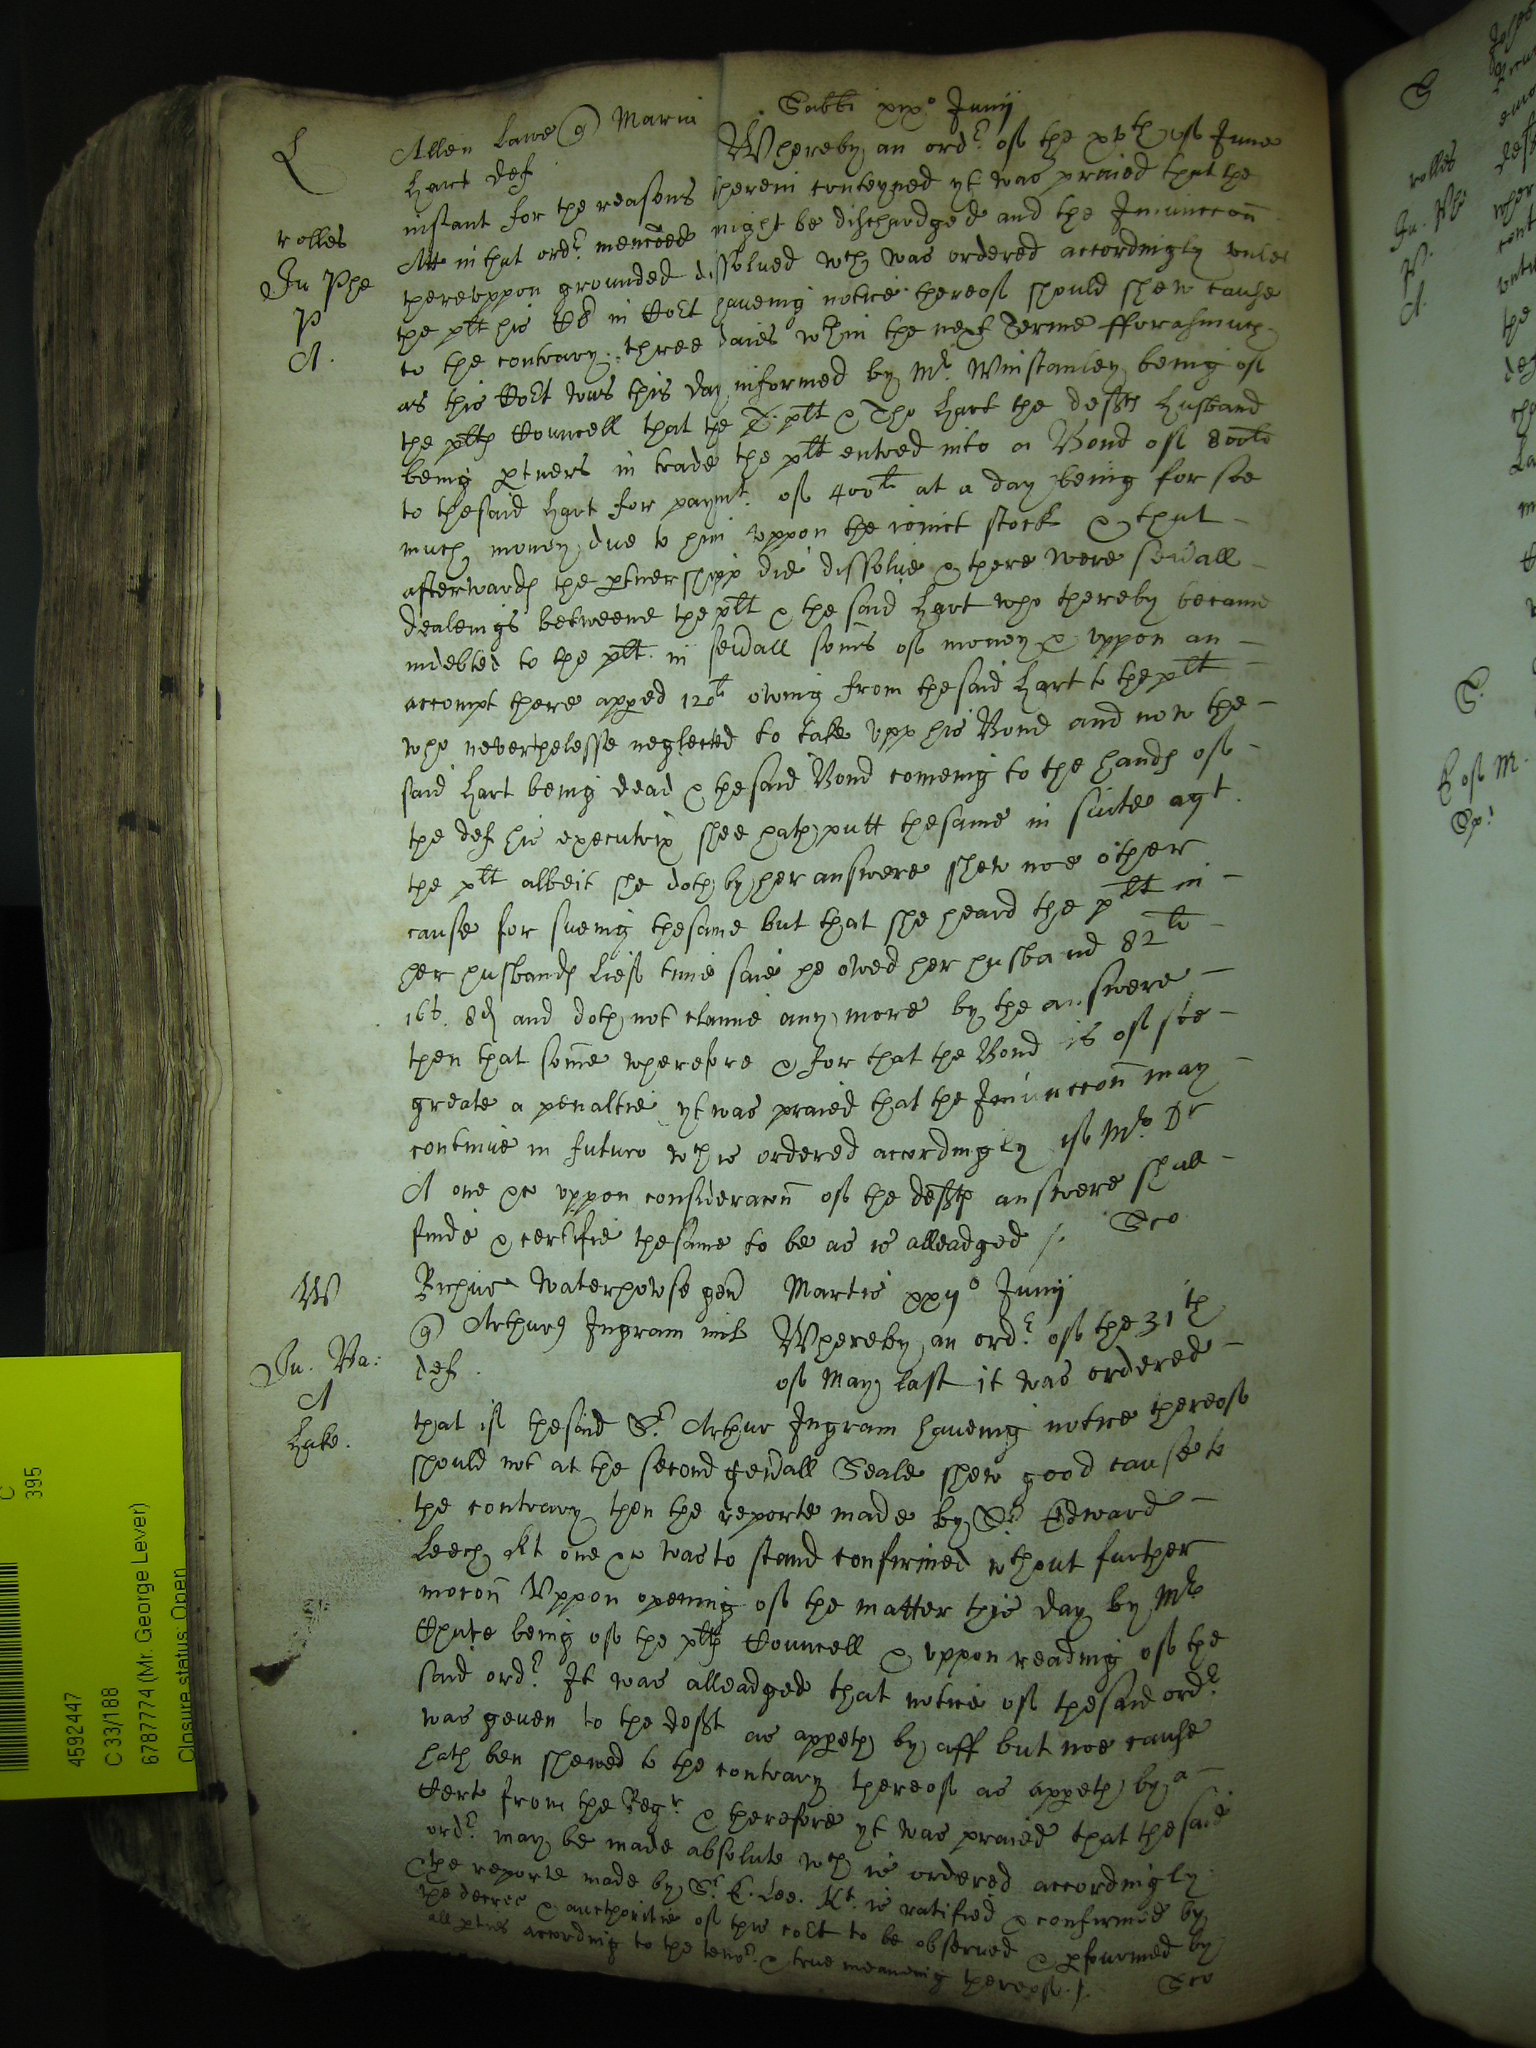 Sabbti xix° Junij
L
Allen Lawe q Maria
Hart def
Whereby an ordr of the xvth of June
instant for the reasons therein conteyned yt was praied that the
rolles
Att in that ordr menceoned might be dischardged and the Iniunccon
In Phe
therevppon grounded dissolued wch was ordered accordingly vnles
P
the plt his Clk in Court haueing notice thereof should shew cause
A.
to the contrary three daies wthin the next Terme fforasmuch
as this Court was this day informed by Mr Winstanley being of
the plts Councell that the plt & Tho Hart the defts husband
being ptners in trade the plt entred into a Bond of 800li
to thesaid Hart for paymt of 400li at a day being for soe
much money due to him vppon the ioinct stock & that
afterwards the ptnershipp did dissolue & there were seuall
dealeings betweene the plt & the said Hart who thereby became
indebted to the plt in seuall somes of money & vppon an
accompt there apped 120li oweing from thesaid Hart to the plt
who neverthelesse neglected to take vpp his Bond and now the
said Hart being dead & thesaid Bond comeing to the hands of
the def his executrix shee hath putt thesame in suite agt
the plt albeit she doth by her answere shew noe other
cause for sueing thesame but that she heard the plt in
her husbands lief time saie he owed her husband 82li
16s. 8d and doth not claime any more by the answere
then that some wherefore & for that the Bond is of soe
greate a penaltie yt was praied that the Iniunccon may
continue in futuro wch is ordered accordingly if Mr Dr
A one &c vppon consideracon of the defts answere shall
finde & certifie thesame to be as is alleadged /.
W
Richus Waterhowse gen
Martis xxij° Junij
q Arthurus Ingram mil
Whereby an ordr of the 31th
In. Ba:
def.
of May last it was ordered
A
that if thesaid Sr Arthur Ingram haueing notice thereof
Lake.
should not at the second geuall Seale shew good cause to
the contrary then the reporte made by Sr Edward
Leech Kt one &c was to stand confirmed wthout further
mocon Vppon opening of the matter this day by Mr
Chute being of the plts Councell & vppon reading of the
said ordr It was alleadged that notice of thesaid ordr
was geuen to the deft as appeth by aff but noe cause
hath ben shewed to the contrary thereof as appeth by a
Cert from the Regr & therefore yt was praied that thesaid
ordr may be made absolute wch is ordered accordingly
& the reporte made by Sr E. Lee. Kt. is ratified & confirmed by
the decree & aucthoritie of this Court to be observed & pfourmed by
all pties according to the tenor & true meaneing thereof /.
C
395
4592447
C 33/188
6787774 (Mr. George Lever)
Closure status: Open
rolles
In. Phe
P.
A.
S.